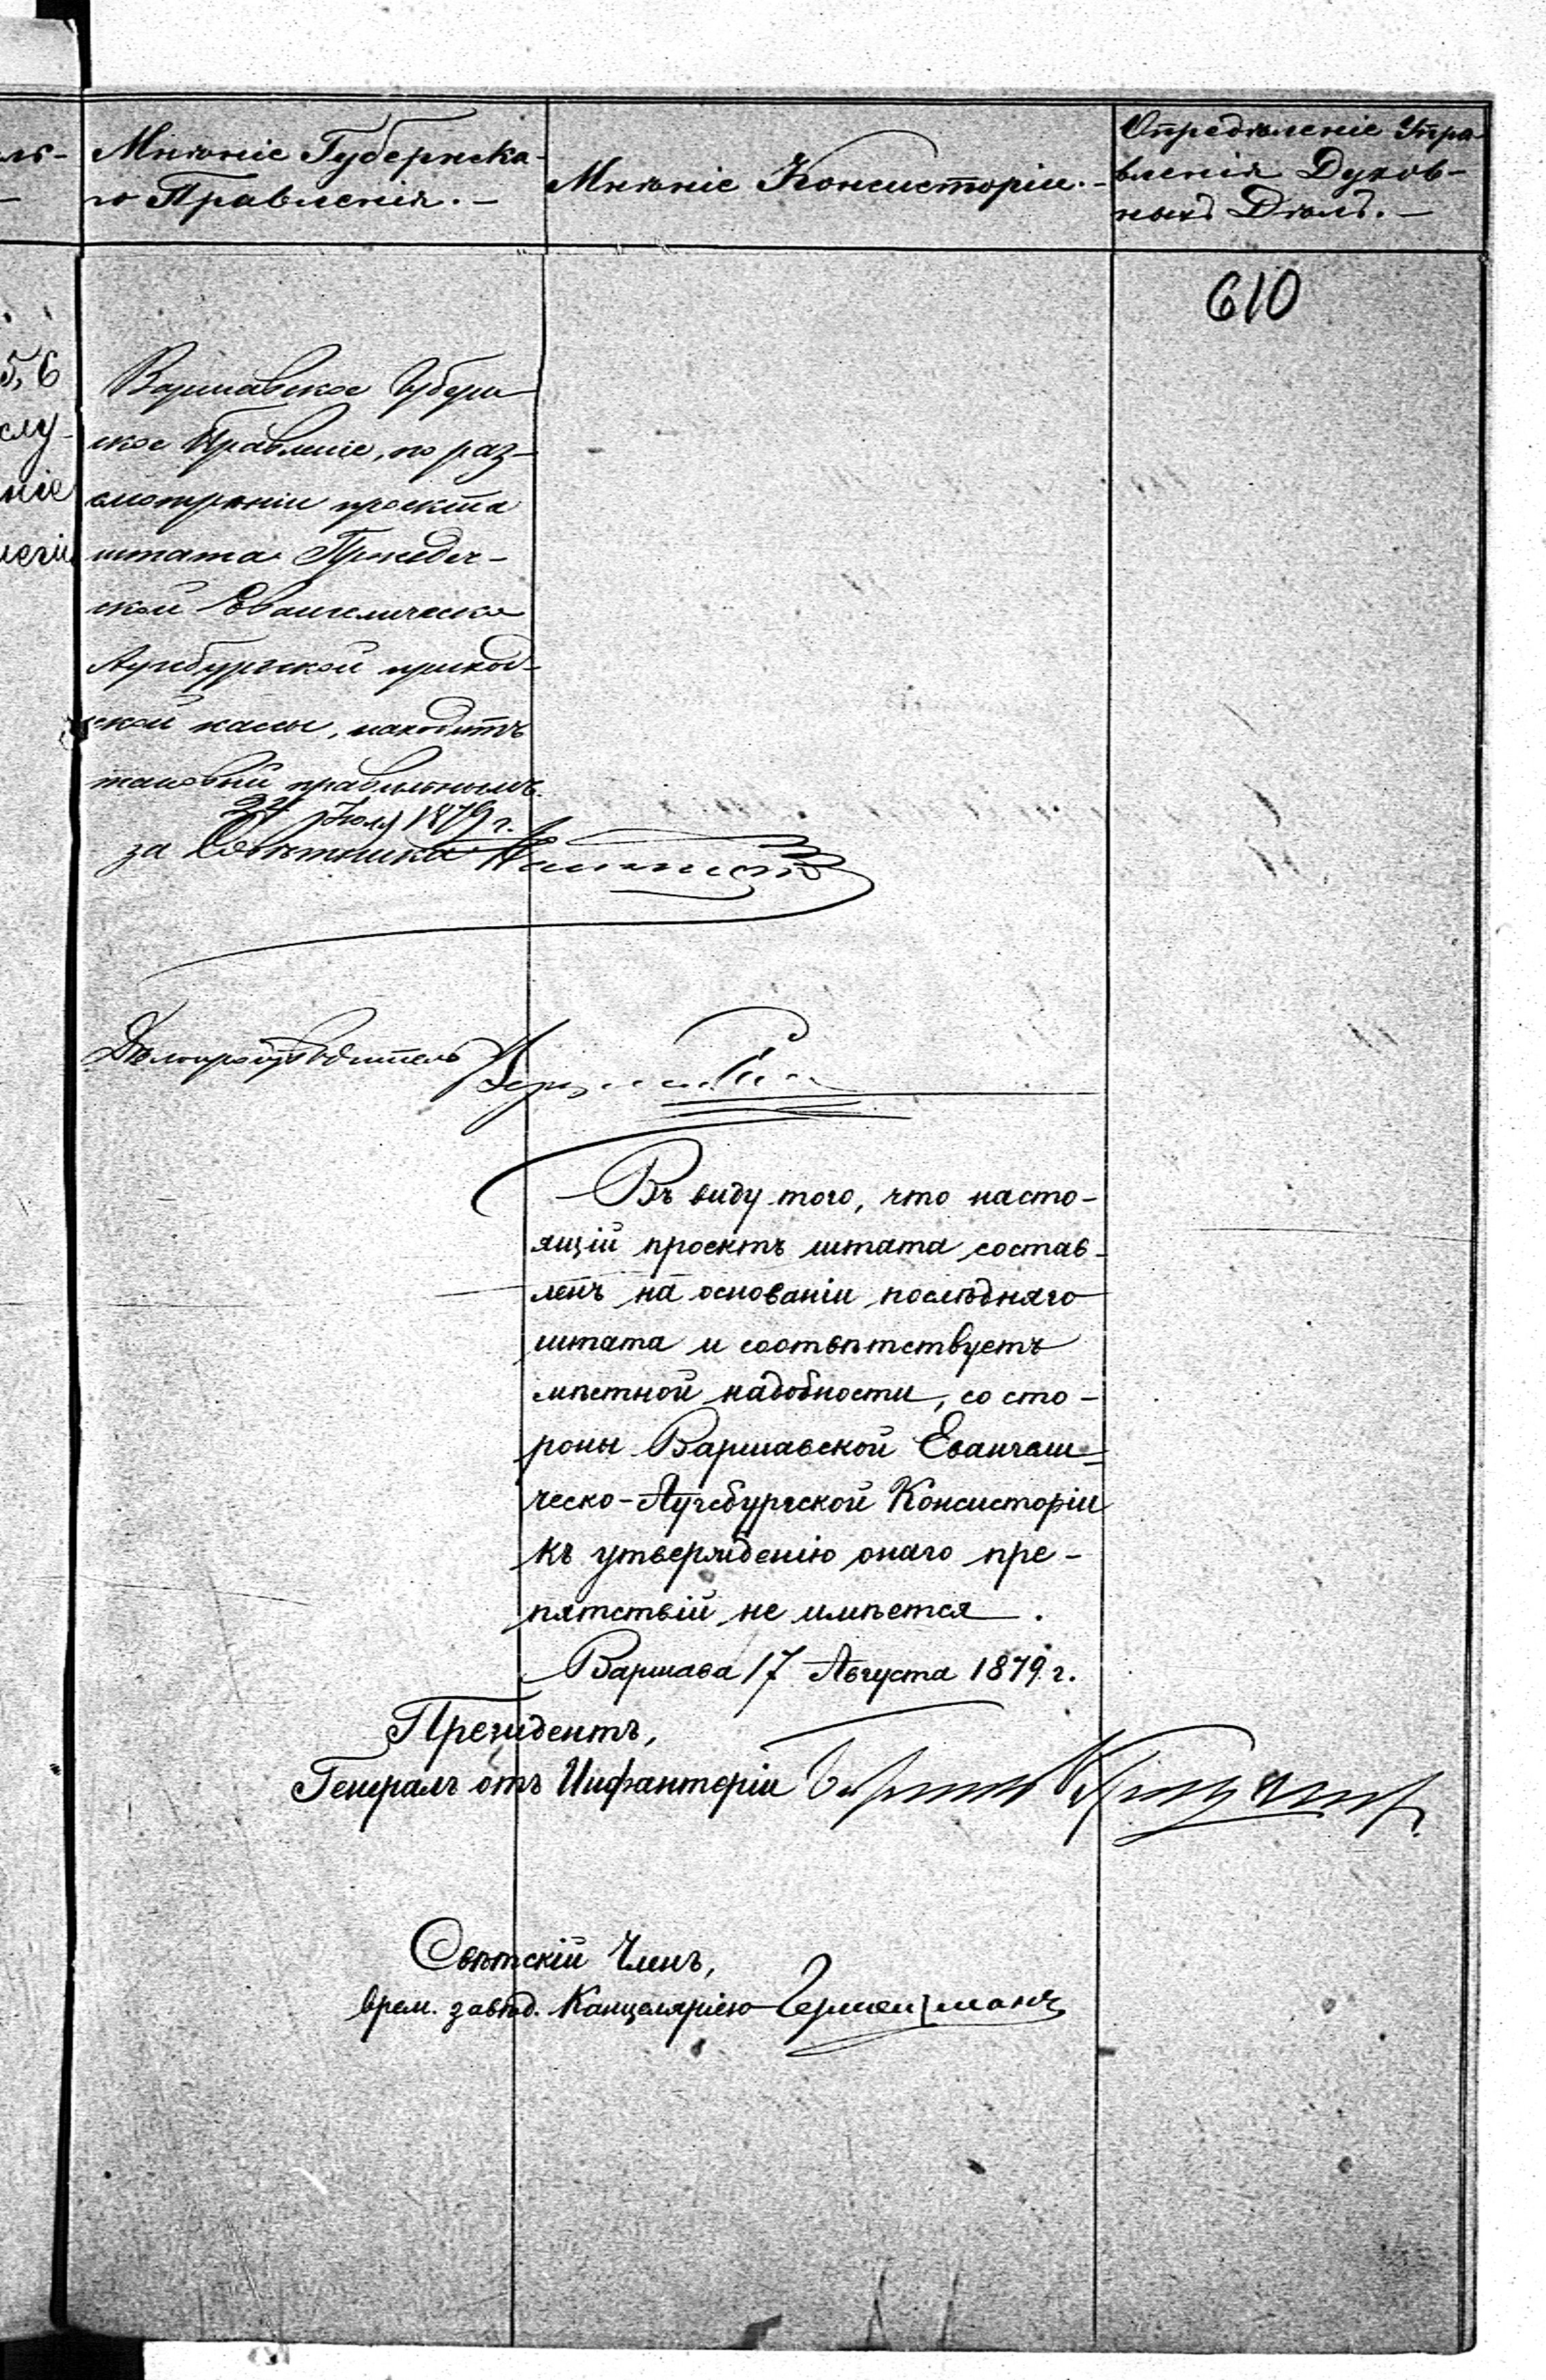 Мнѣніе Губернска-
го Правленія. —
Мнѣніе Консисторіи. —
Опредѣленіе Упра-
вленія Духов-
ныхъ Дѣлъ. —
610
5,6
слу-
ніе
Варшавское Губерн-
ское Правленіе, по раз-
смотрѣніи проекта
штата
ской Евангелическо
Аугсбургской приход-
ской кассы, находитъ
таковый правильнымъ.
24 Юля 1879 г.
за Совѣтника
Дѣлопроизводитель
Въ виду того, что насто-
ящій проектъ штата состав-
ленъ на основаніи послѣдняго
штата и соотвѣтствуетъ
мѣстной надобности, со сто-
роны Варшавской Евангели-
ческо-Аугсбургской Консисторіи
къ утвержденію онаго пре-
пятствій не имѣется.
Варшава 17 Августа 1879 г.
Президентъ,
Генералъ отъ Инфантеріи
Свѣтскій Членъ,
врем. завѣд. Канцеляріею